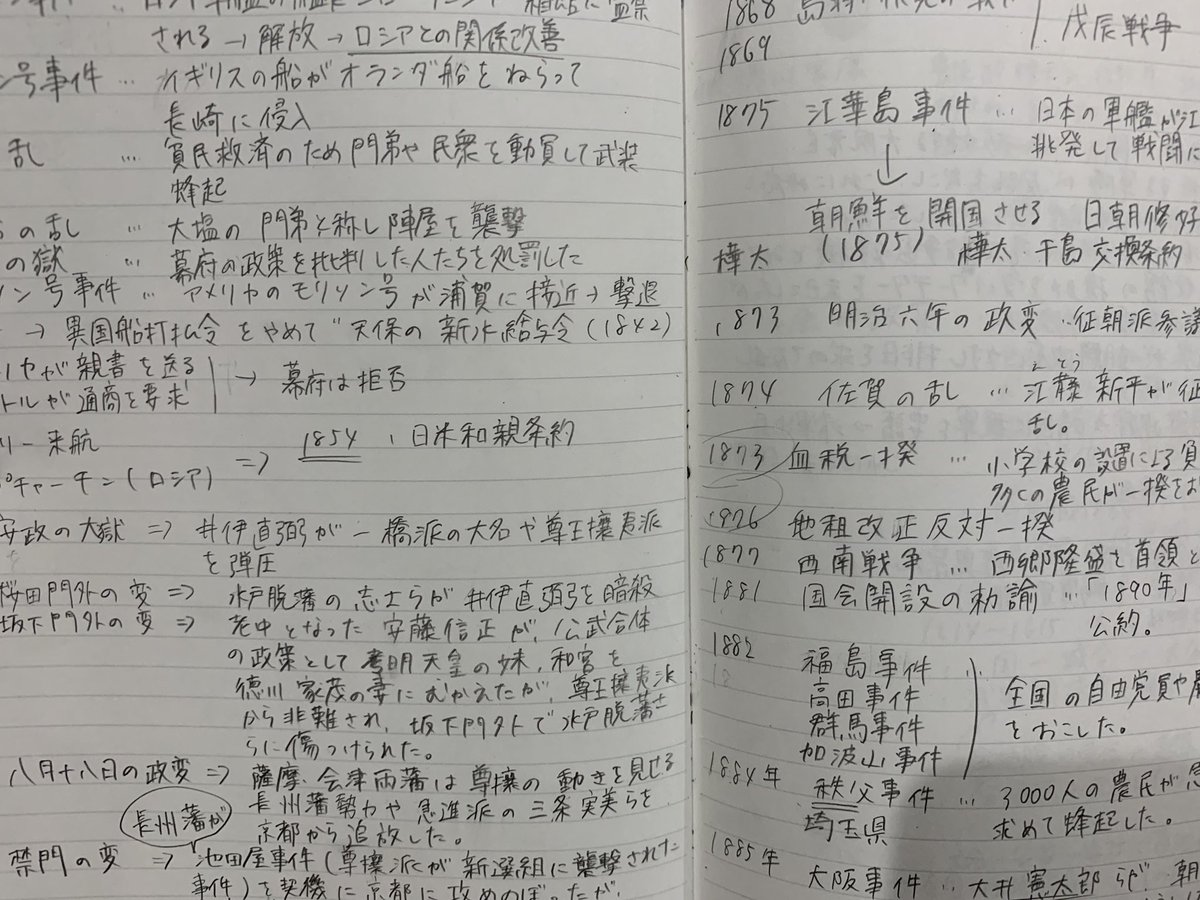 される→解放→ロシアとの関係改善
号事件 … イギリスの船がオランダ船をねらって
長崎に侵入
乱 … 貧民救済のため門弟や民衆を動員して武装
蜂起
の乱 … 大塩の門弟と称し陣屋を襲撃
の獄 … 幕府の政策を批判した人たちを処罰した
ソン号事件 … アメリカのモリソン号が浦賀に接近→撃退
→異国船打払令をやめて"天保の薪水給与令(1842)
が親書を送る
トルが通商を要求 → 幕府は拒否
リー来航
チャーチン(ロシア) ⇒ 1854、日米和親条約
安政の大獄 ⇒ 井伊直弼が一橋派の大名や尊王攘夷派
を弾圧
桜田門外の変 ⇒ 水戸脱藩の志士らが井伊直弼を暗殺
坂下門外の変 ⇒ 老中となった安藤信正が、公武合体
の政策として孝明天皇の妹、和宮を
徳川家茂の妻にむかえたが、尊王攘夷派
から非難され、坂下門外で水戸脱藩士
らに傷つけられた。
八月十八日の政変 ⇒ 薩摩・会津両藩は尊攘の動きを見せる
長州藩勢力や急進派の三条実美らを
京都から追放した。
長州藩が
禁門の変 ⇒ 池田屋事件(尊攘派が新選組に襲撃された
事件)を契機に京都に攻めのぼったが、
1868
戊辰戦争
1869
1875 江華島事件 … 日本の軍艦が江
挑発して戦闘に
↓
朝鮮を開国させる 日朝修好
樺太 (1875) 樺太・千島交換条約
1873 明治六年の政変 … 征朝派参議
1874 佐賀の乱 … 江藤新平が征
えとう
乱。
1873 血税一揆 … 小学校の設置による負
多くの農民が一揆をお
1976 地租改正反対一揆
1877 西南戦争 … 西郷隆盛を首領と
1881 国会開設の勅諭 …「1890年」
公約。
1882
福島事件
高田事件
群馬事件
加波山事件
全国の自由党員や農
をおこした。
1884年
秩父事件 … 3000人の農民が
埼玉県 求めて蜂起した。
1885年
大阪事件 … 大井憲太郎らが、朝